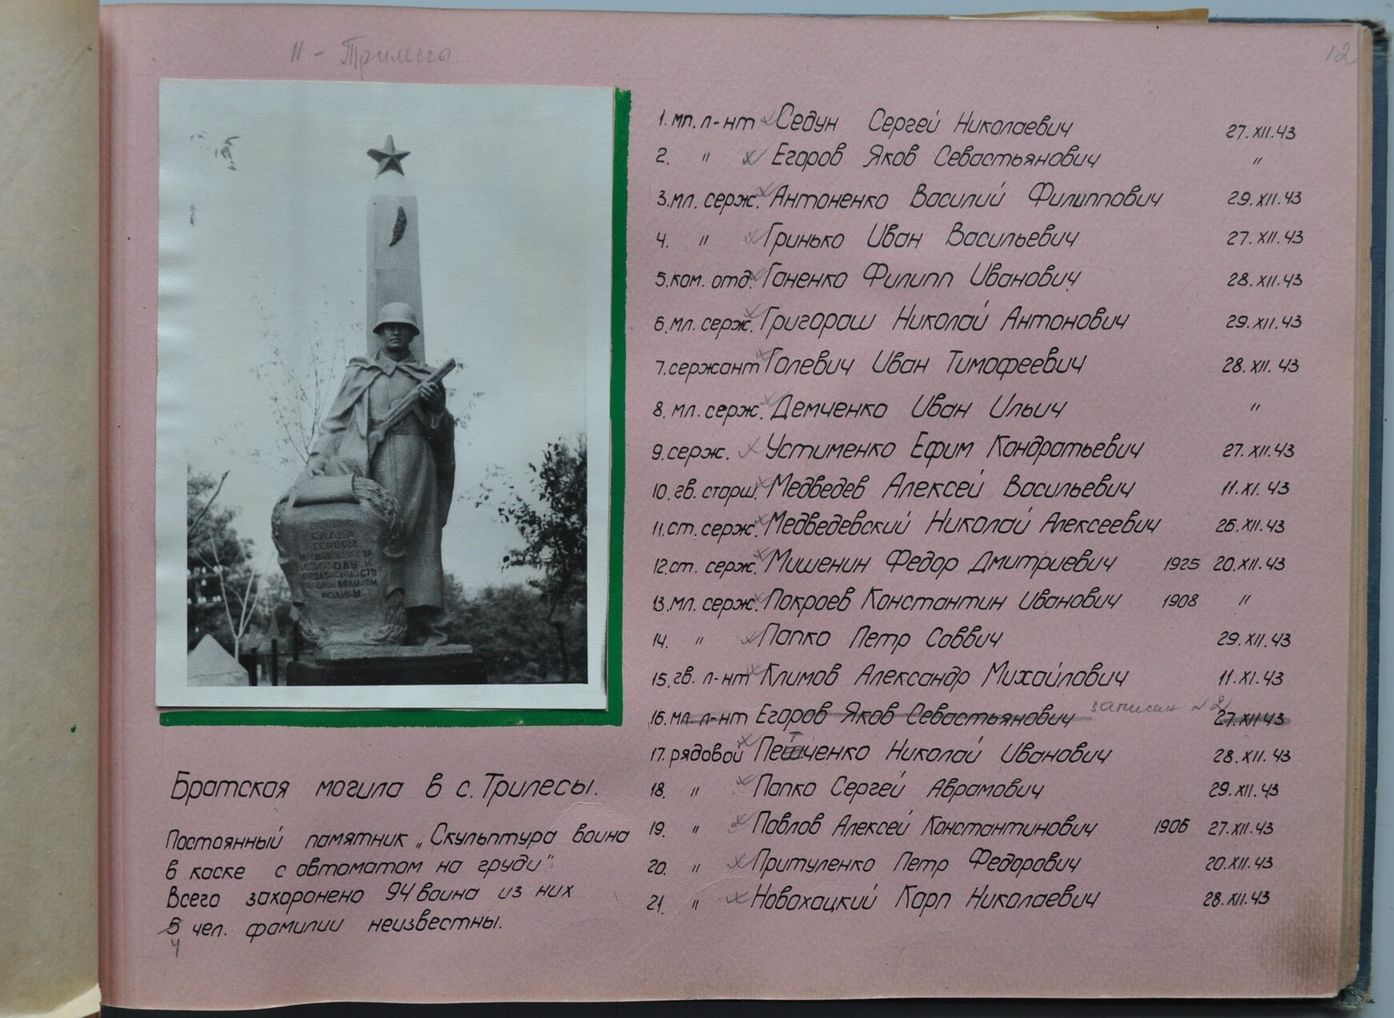 11 - Трилессы.
12
СЛАВА
ГЕРОЯМ
СВОБОДУ И
НЕЗАВИСИМОСТЬ
НАШЕЙ ВЕЛИКОЙ
РОДИНЫ
Братская могила в с. Трилесы.
Постоянный памятник „Скульптура воина
в каске с автоматом на груди":
Всего захоронено 94 воина из них
5 чел. фамилии неизвестны.
4
1. мл. л-нт Седун Сергей Николаевич 27.XII.43
2. " Егоров Яков Севастьянович "
3. мл. серж. Антоненко Василий Филиппович 29.XII.43
4. " Гринько Иван Васильевич 27.XII.43
5. ком. отд. Ганенко Филипп Иванович 28.XII.43
6. мл. серж. Григораш Николай Антонович 29.XII.43
7. сержант Голевич Иван Тимофеевич 28.XII.43
8. мл. серж. Демченко Иван Ильич "
9. серж. Устименко Ефим Кондратьевич 27.XII.43
10. гв. старш. Медведев Алексей Васильевич 11.XI.43
11. ст. серж. Медведевский Николай Алексеевич 26.XII.43
12. ст. серж. Мишенин Федор Дмитриевич 1925 20.XII.43
13. мл. серж. Покроев Константин Иванович 1908 "
14. " Папко Петр Саввич 29.XII.43
15. гв. л-нт Климов Александр Михайлович 11.XI.43
16. мл. л-нт Егоров Яков Севастьянович записан №2 27.XII.43
17. рядовой Петченко Николай Иванович 28.XII.43
18. " Папко Сергей Аврамович 29.XII.43
19. " Павлов Алексей Константинович 1906 27.XII.43
20. " Притуленко Петр Федорович 20.XII.43
21. " Новохацкий Карп Николаевич 28.XII.43